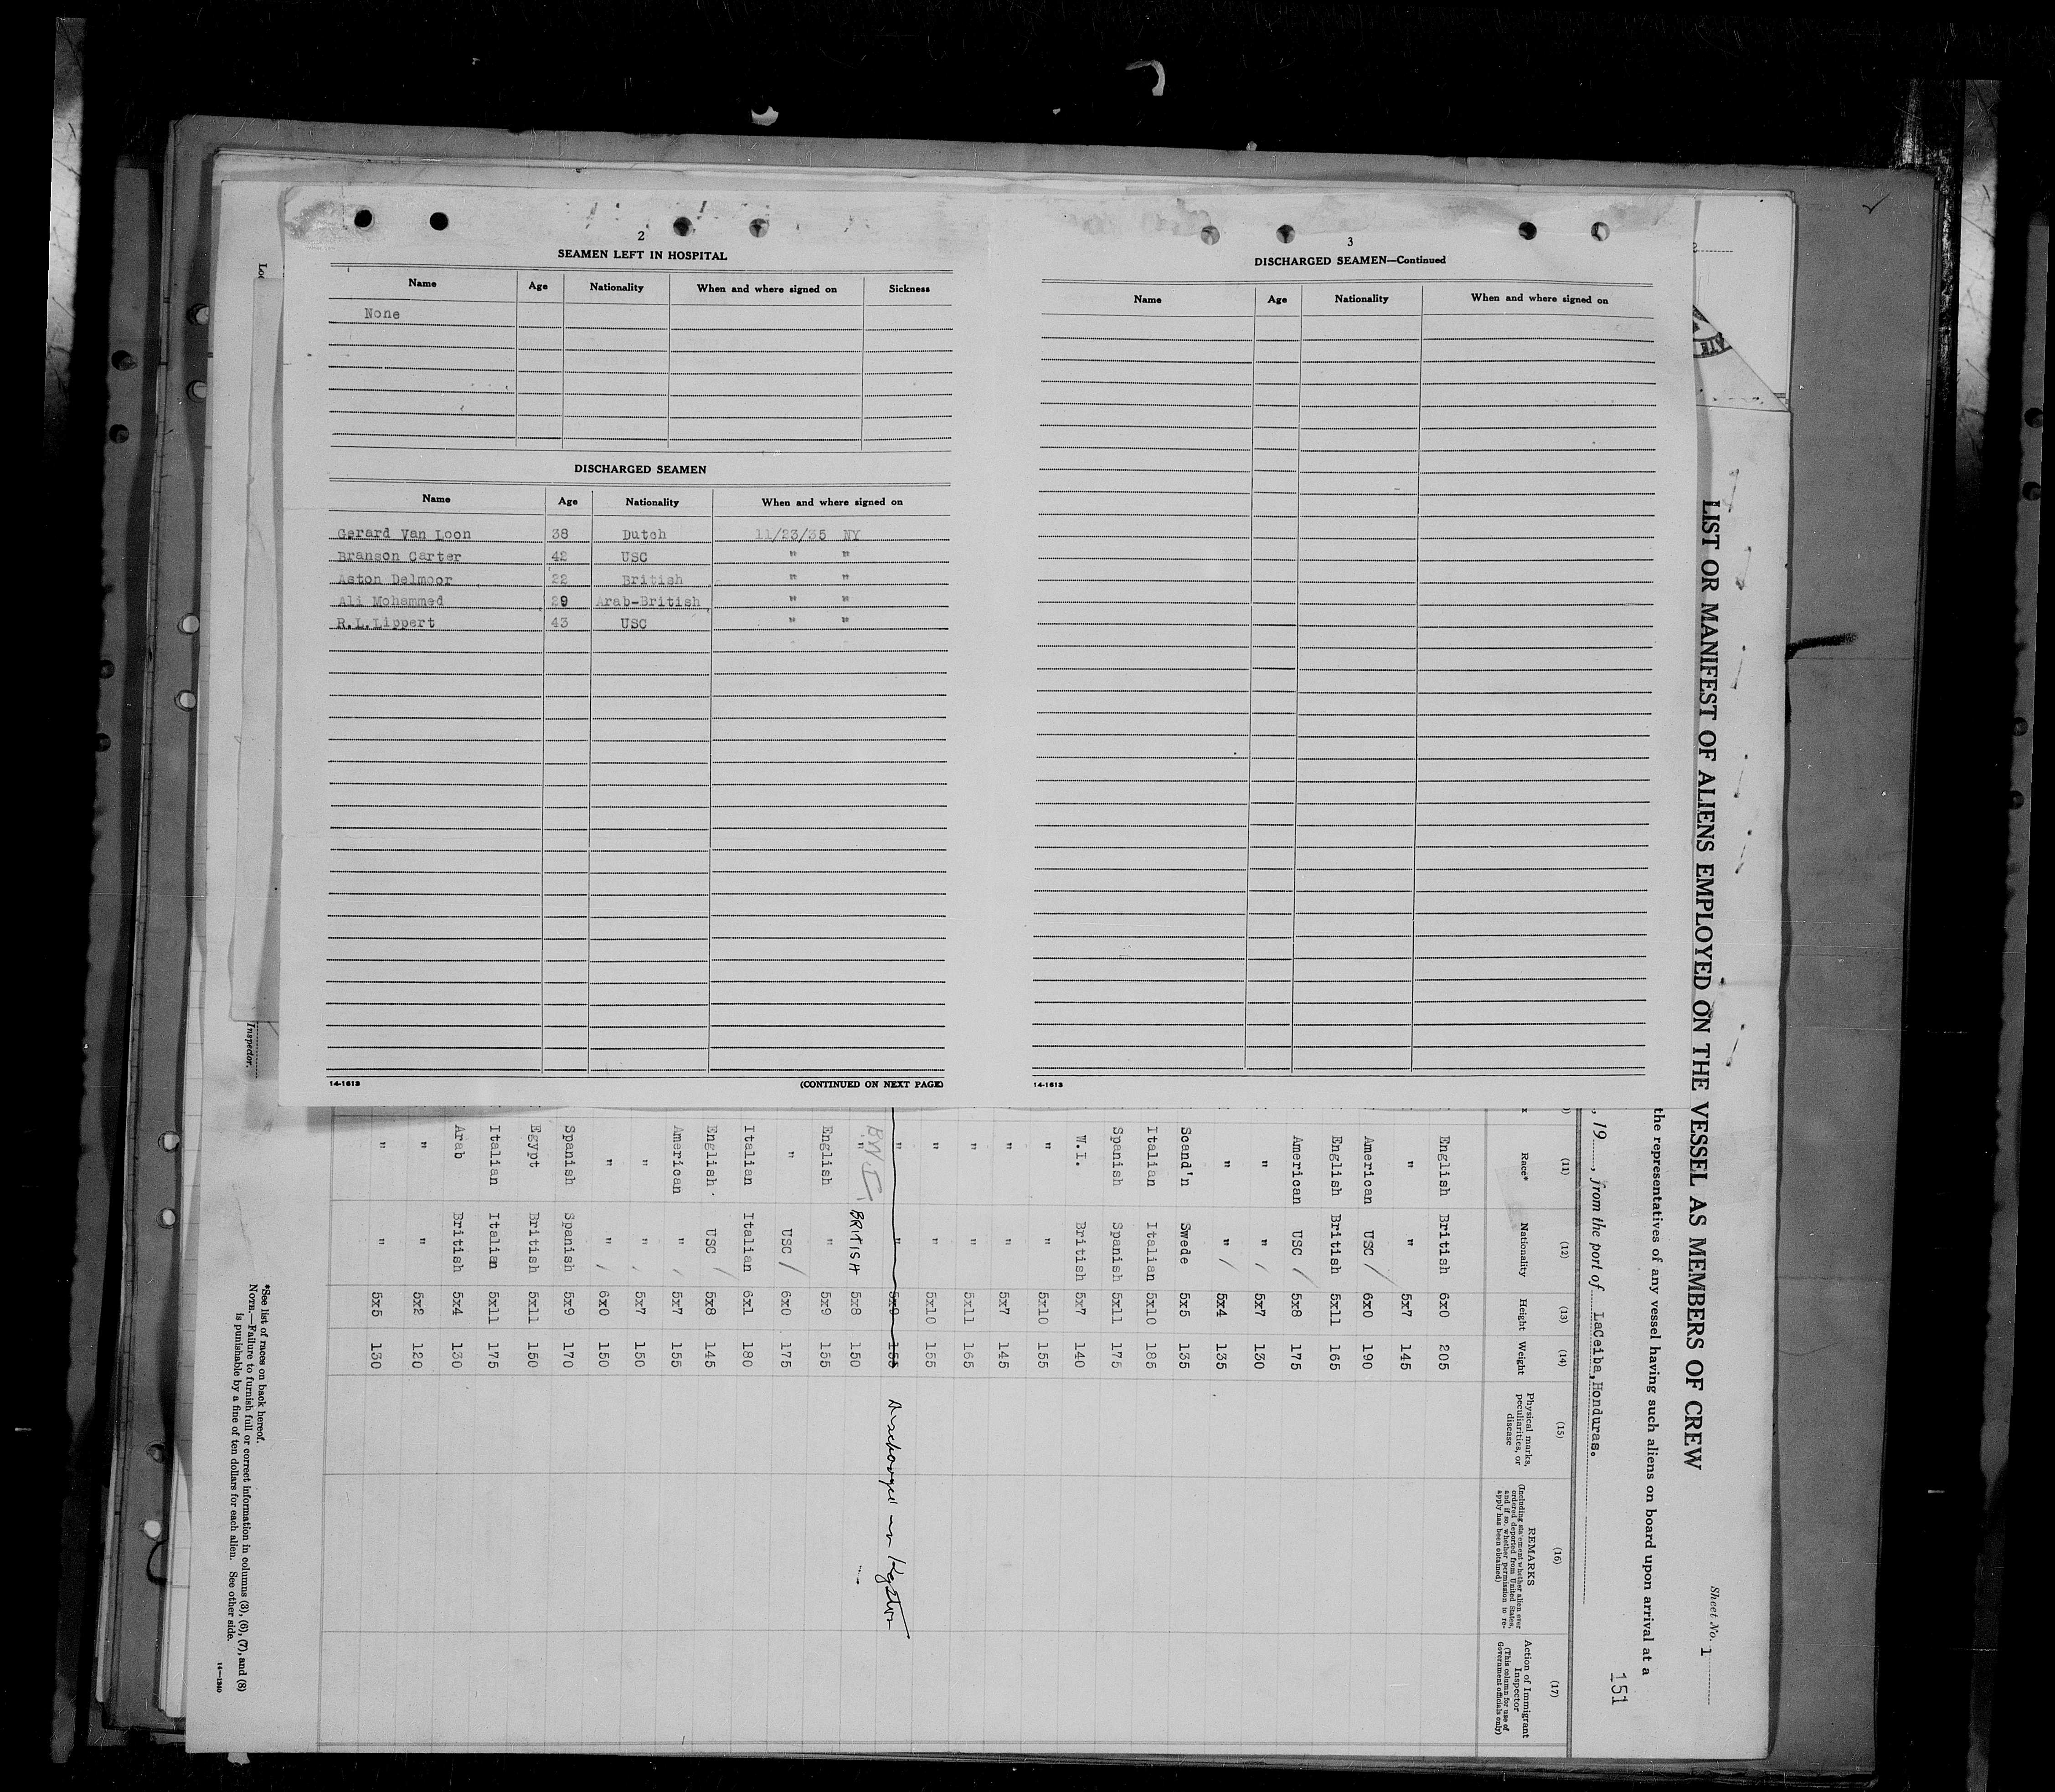 2
SEAMEN LEFT IN HOSPITAL
Name Age Nationality When and where signed on Sickness
None
DISCHARGED SEAMEN
Name Age Nationality When and where signed on
Gerard Van Loon 38 Dutch 11/23/35 NY
Branson Carter 42 USC " "
Aston Delmoor 22 British " "
Ali Mohammed 29 Arab-British " "
R.L.Lippert 43 USC " "
14-1613 (CONTINUED ON NEXT PAGE)
3
DISCHARGED SEAMEN—Continued
Name Age Nationality When and where signed on
14-1613
LIST OR MANIFEST OF ALIENS EMPLOYED ON THE VESSEL AS MEMBERS OF CREW
Sheet No. 1
the representatives of any vessel having such aliens on board upon arrival at a
151
, 19 , from the port of LaCeiba, Honduras.
(11) (12) (13) (14) (15) (16) (17)
Race* Nationality Height Weight Physical marks, peculiarities, or disease REMARKS (Including statement whether alien ever ordered deported from United States, and if so, whether permission to reapply has been obtained) Action of Immigrant Inspector (This column for use of Government officials only)
English British 6x0 205
" " 5x7 145
American USC / 6x0 190
English British 5x11 165
American USC / 5x8 175
" " 5x7 130
" " / 5x4 135
Scand'n Swede 5x5 135
Italian Italian 5x10 185
Spanish Spanish 5x11 175
W.I. British 5x7 140
" " 5x10 155
" " 5x7 145
" " 5x11 165
" " 5x10 155
" " 5x9 155 Discharged in Kgston
B.W.I. " BRITISH 5x8 150
English " 5x9 155
" USC / 6x0 175
Italian Italian 6x1 180
English USC / 5x8 145
American " 5x7 155
" " 5x7 150
" " / 6x0 150
Spanish Spanish 5x9 170
Egypt British 5x11 150
Italian Italian 5x11 175
Arab British 5x4 130
" " 5x2 120
" " 5x5 130
*See list of races on back hereof.
NOTE.—Failure to furnish full or correct information in columns (3), (6), (7), and (8)
is punishable by a fine of ten dollars for each alien. See other side.
14—1240
Inspector.